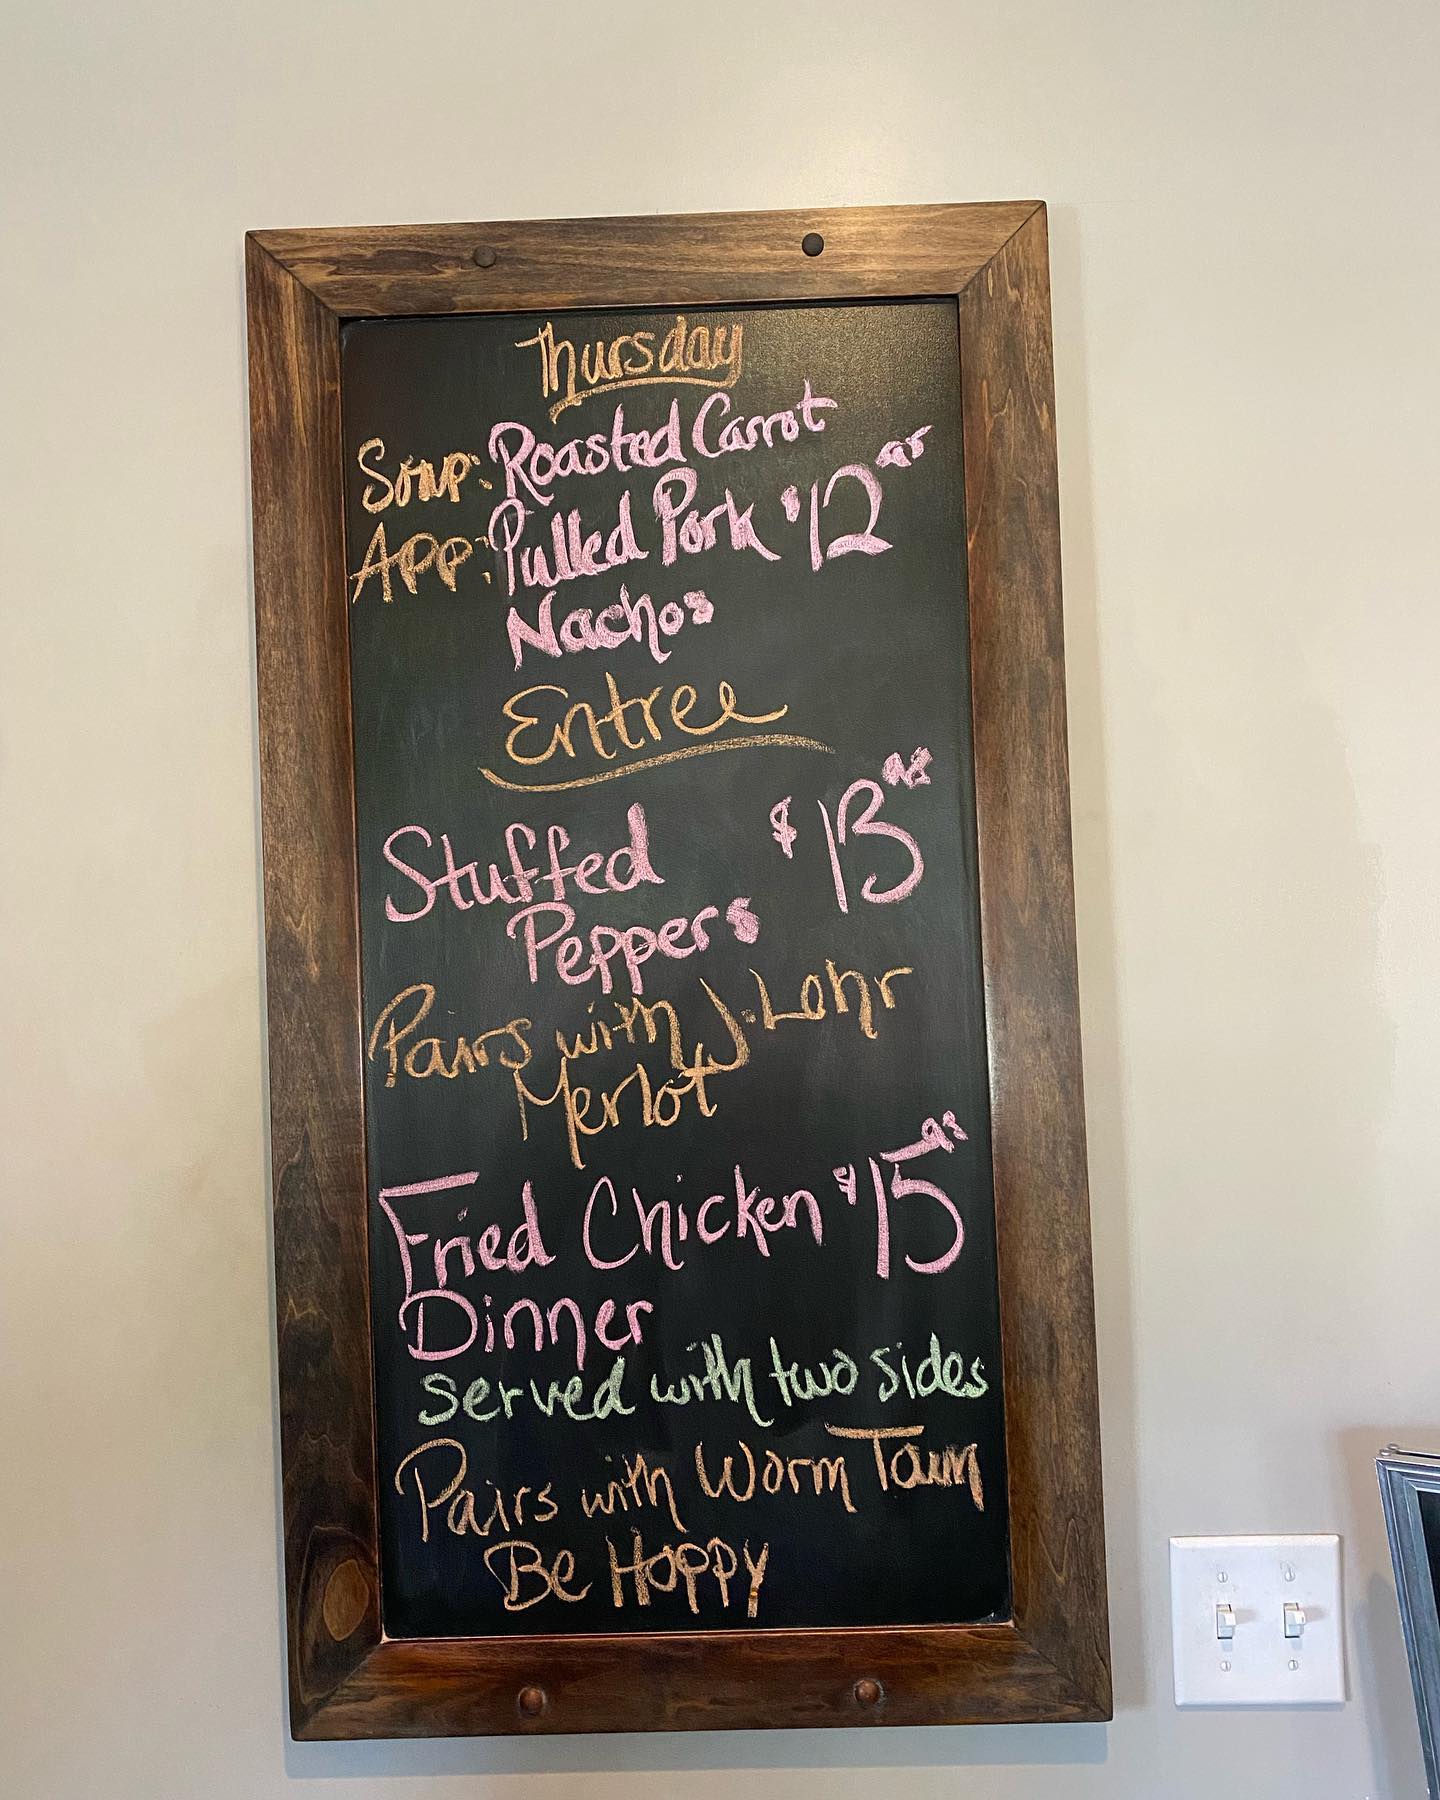 Thursday
Soup: Roasted Carrot
App: Pulled Pork $12.95
Nachos
Entree
Stuffed $13.95
Peppers
Pairs with J. Lohr
Merlot
Fried Chicken $15.95
Dinner
served with two sides
Pairs with Worm Town
Be Hoppy